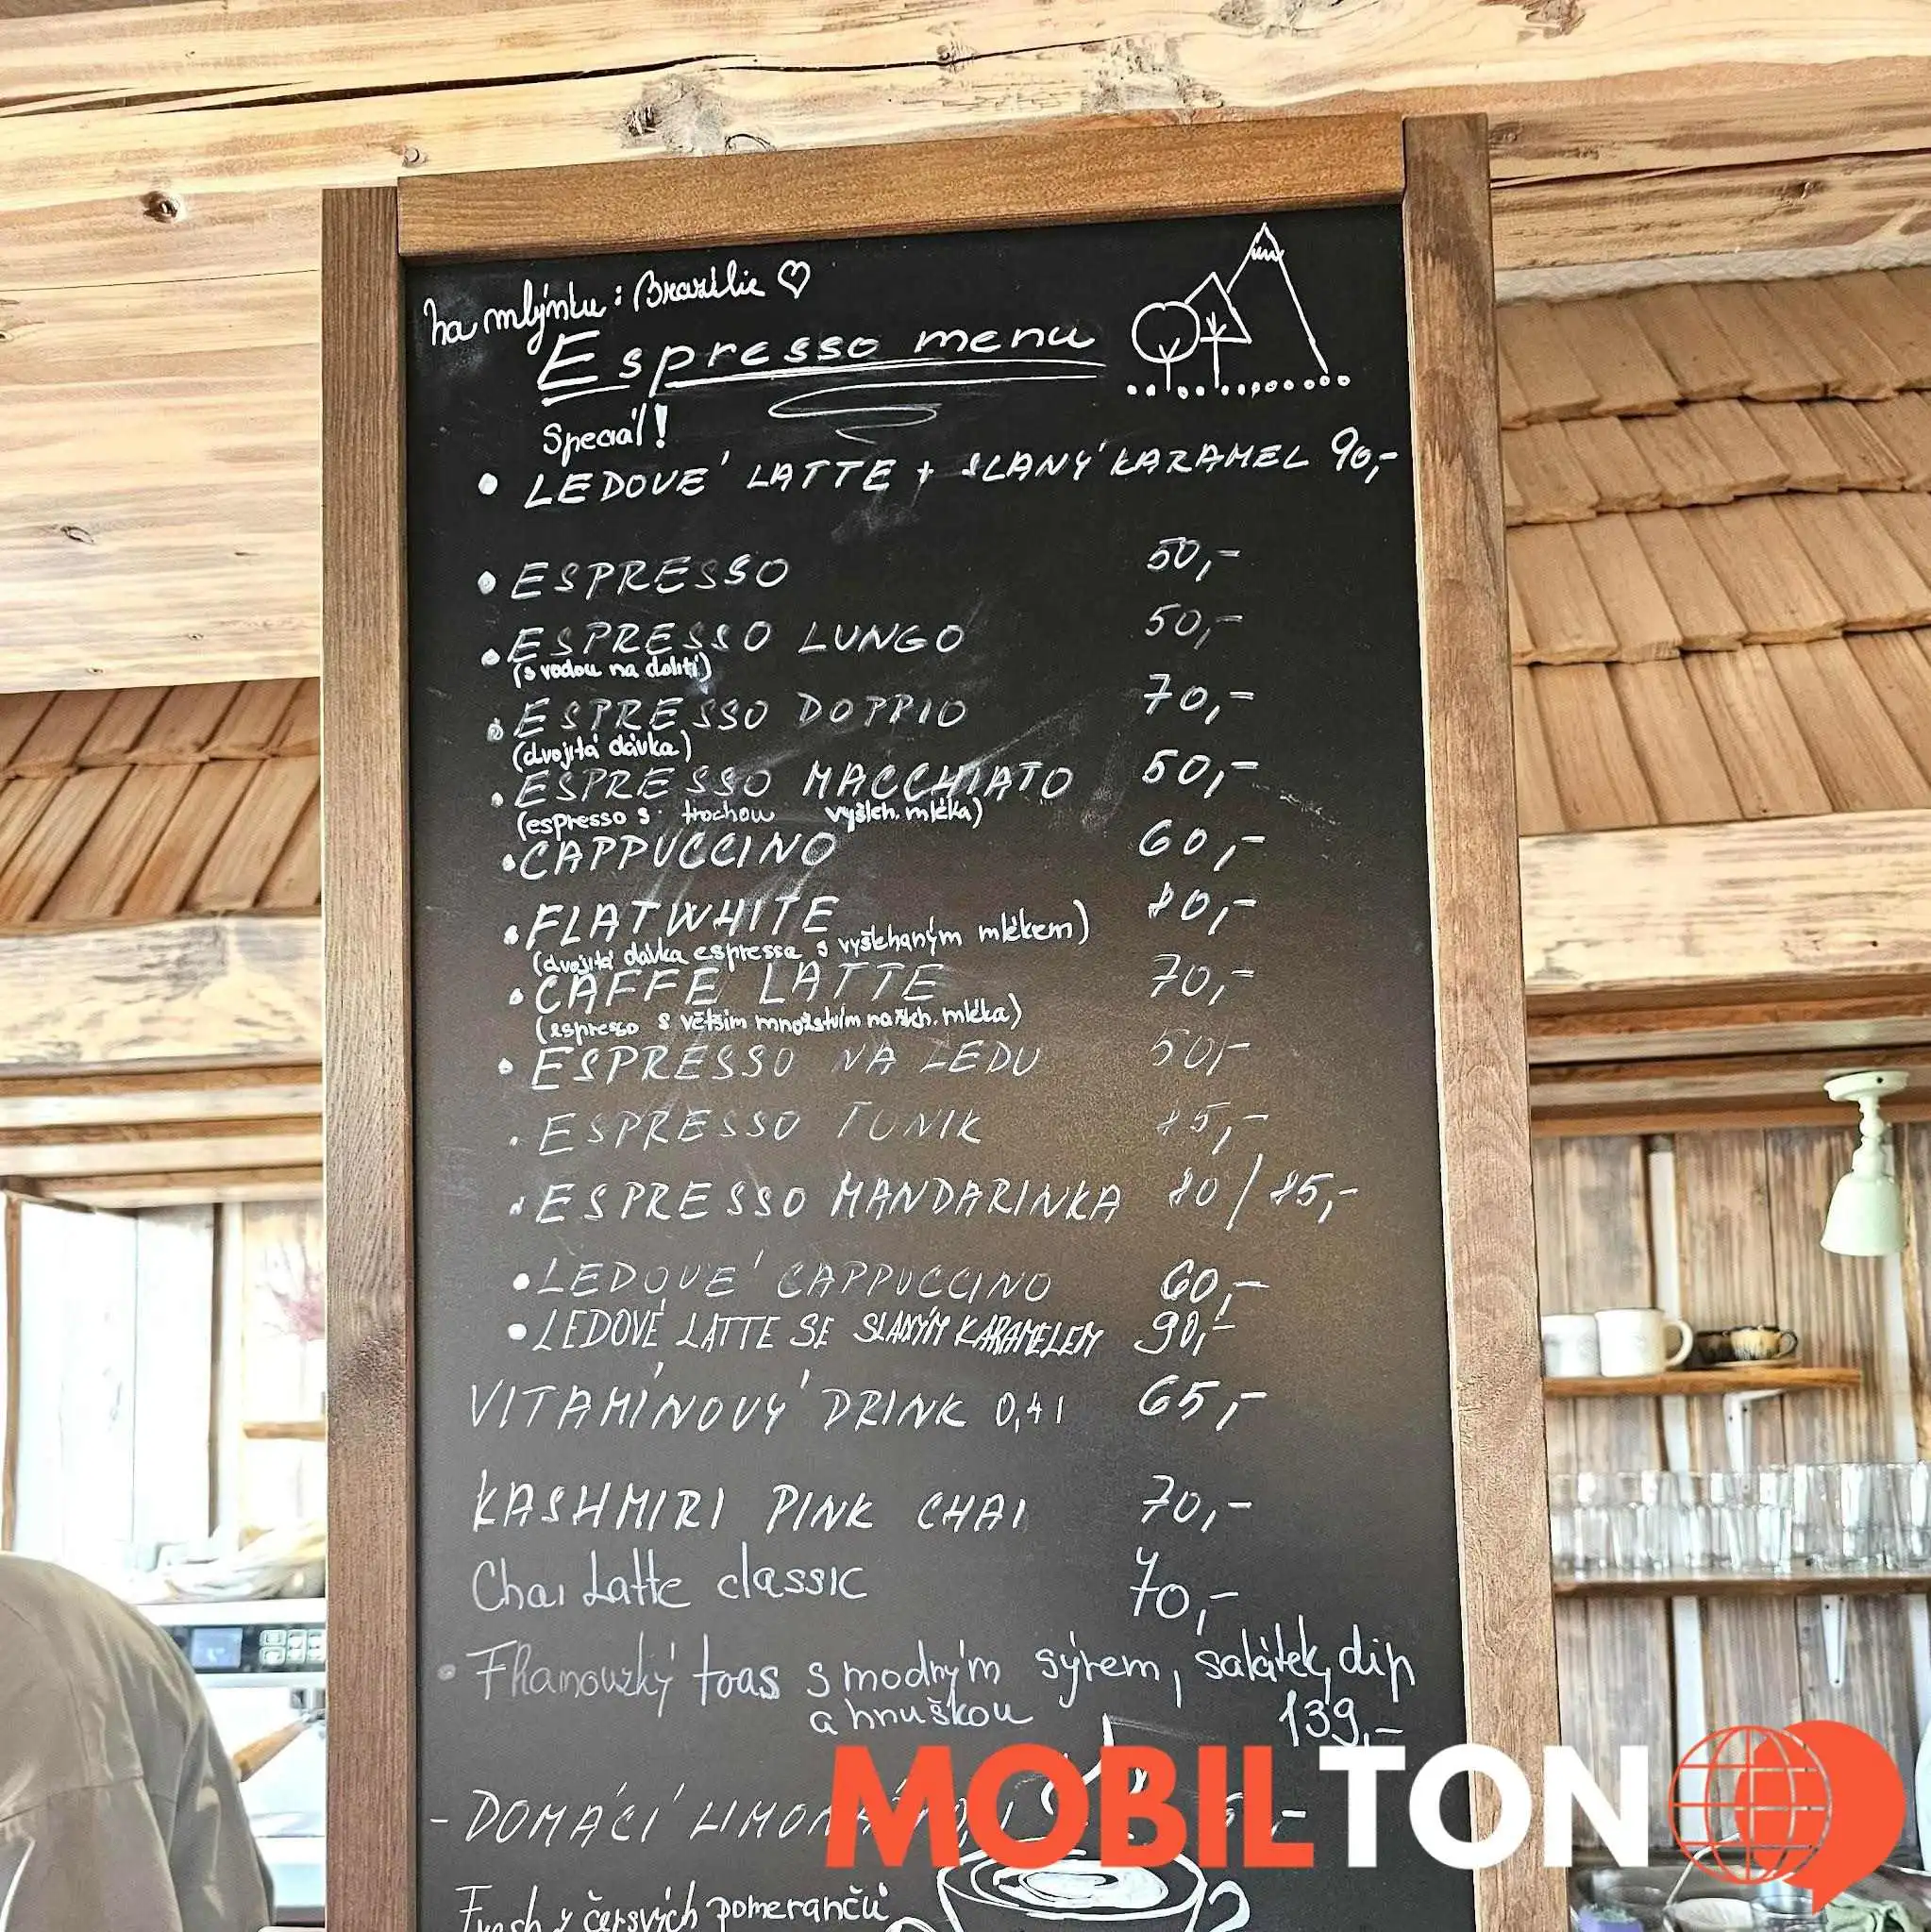 na mlýnku: Brazílie ♡
Espresso menu
Speciál!
• LEDOVÉ LATTE + SLANÝ KARAMEL 90,-
• ESPRESSO 50,-
• ESPRESSO LUNGO 50,-
(s vodou na dolití)
• ESPRESSO DOPPIO 70,-
(dvojitá dávka)
• ESPRESSO MACCHIATO 50,-
(espresso s trochou vyšleh. mléka)
• CAPPUCCINO 60,-
• FLATWHITE 80,-
(dvojitá dávka espressa s vyšlehaným mlékem)
• CAFFE LATTE 70,-
(espresso s větším množstvím našleh. mléka)
• ESPRESSO NA LEDU 50,-
• ESPRESSO TONIK 85,-
• ESPRESSO MANDARINKA 80/85,-
• LEDOVÉ CAPPUCCINO 60,-
• LEDOVÉ LATTE SE SLANÝM KARAMELEM 90,-
VITAMÍNOVÝ DRINK 0,4 l 65,-
KASHMIRI PINK CHAI 70,-
Chai Latte classic 70,-
• Francouzský toas s modrým sýrem, salátek, dip
a hruškou 139,-
- DOMÁCÍ
Fresh z čersvích pomerančů
MOBILTON